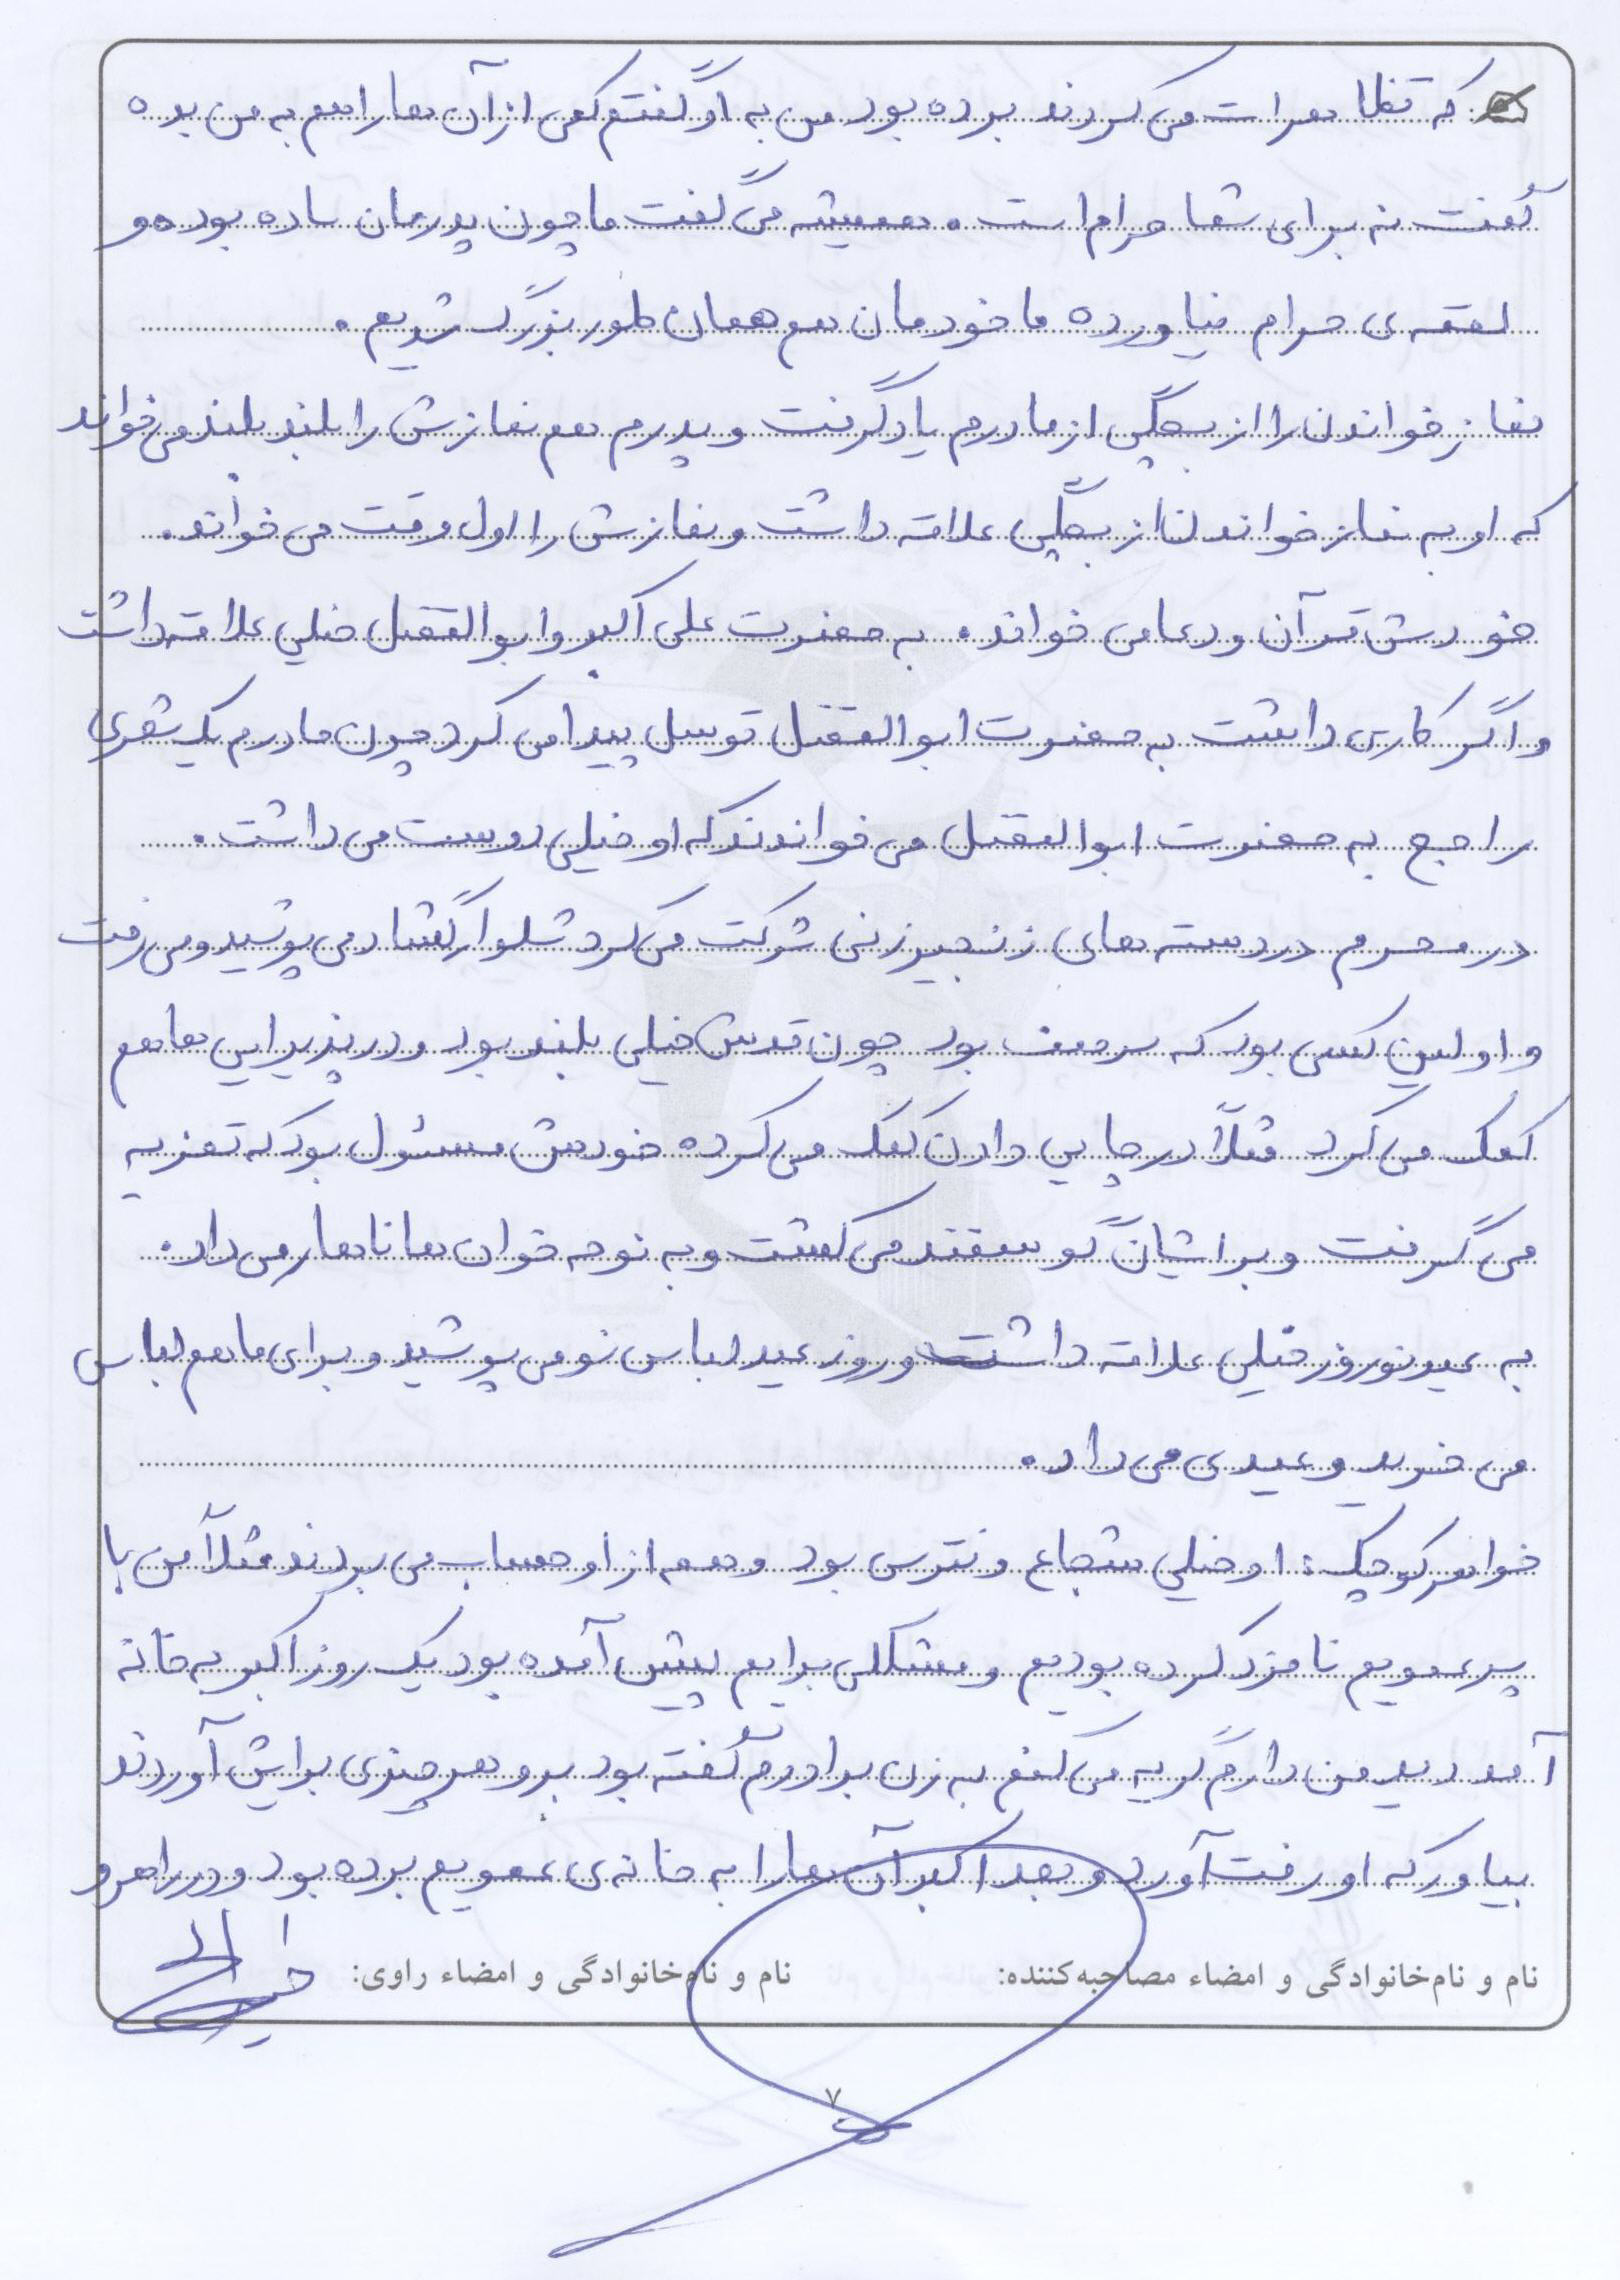 که تظاهرات می کردند برده بود من به او گفتم کمی از آن ها را هم به من بده
گفت نه برای شما حرام است. همیشه می گفت ما چون پدرمان ساده بوده و
لقمه ی حرام نیاورده ما خودمان هم همان طور بزرگ شدیم.
نماز خواندن را از بچگی از مادرم یاد گرفت و پدرم هم نمازش را بلند بلند می خواند
که او به نماز خواندن از بچگی علاقه داشت و نمازش را اول وقت می خواند.
خودش قرآن و دعا می خواند. به حضرت علی اکبر و ابوالفضل خیلی علاقه داشت
و اگر کاری داشت به حضرت ابوالفضل توسل پیدا می کرد چون مادرم یک شعری
راجع به حضرت ابوالفضل می خواندند که او خیلی دوست می داشت.
در محرم در دسته های زنجیر زنی شرکت می کرد شلوار گشاد می پوشید و می رفت
و اولین کسی بود که سر صف بود چون قدش خیلی بلند بود و در پذیرایی ها هم
کمک می کرد مثلاً در چایی دادن کمک می کرده خودش مسئول بود که تعزیه
می گرفت و برایشان گوسفند می کشت و به نوحه خوان ها ناهار می داد.
به عید نوروز خیلی علاقه داشت و روز عید لباس نو می پوشید و برای ما هم لباس
می خرید و عیدی می داد.
خواهر کوچک: او خیلی شجاع و نترس بود و همه از او حساب می بردند مثلاً من با
پسر عمویم نامزد کرده بودیم و مشکلی برایم پیش آمده بود یک روز اکبر به خانه
آمد دید من دارم گریه می کنم به زن برادرم گفته بود برو هر چیزی برایش آوردند
بیاور که او رفت آورد و بعد اکبر آن ها را به خانه ی عمویم برده بود و در راهرو
نام و نام‌خانوادگی و امضاء مصاحبه‌کننده: نام و نام‌خانوادگی و امضاء راوی:
۷